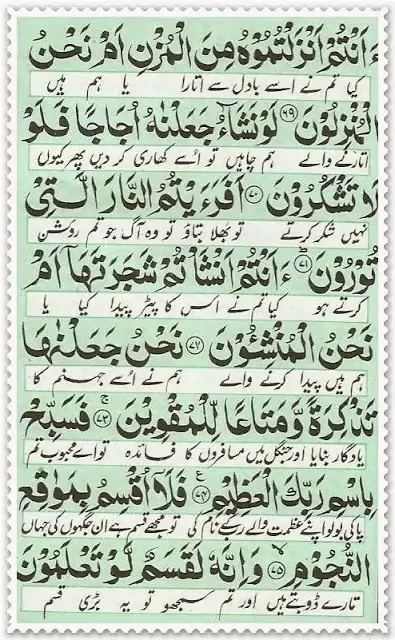 ءَاَنْتُمْ اَنْزَلْتُمُوْهُ مِنَ الْمُزْنِ اَمْ نَحْنُ
کیا تم نے اسے بادل سے اتارا یا ہم ہیں
الْمُنْزِلُوْنَ ﴿۶۹﴾ لَوْ نَشَآءُ جَعَلْنٰهُ اُجَاجًا فَلَوْ
اتارنے والے ہم چاہیں تو اسے کھاری کر دیں پھر کیوں
لَا تَشْكُرُوْنَ ﴿۷۰﴾ اَفَرَءَيْتُمُ النَّارَ الَّتِيْ
نہیں شکر کرتے تو بھلا بتاؤ تو وہ آگ جو تم روشن
تُوْرُوْنَ ﴿۷۱﴾ ءَاَنْتُمْ اَنْشَاْتُمْ شَجَرَتَهَاۤ اَمْ
کرتے ہو کیا تم نے اس کا پیڑ پیدا کیا یا
نَحْنُ الْمُنْشِـُٔوْنَ ﴿۷۲﴾ نَحْنُ جَعَلْنٰهَا
ہم ہیں پیدا کرنے والے ہم نے اُسے جہنم کا
تَذْكِرَةً وَّمَتَاعًا لِّلْمُقْوِيْنَ ﴿۷۳﴾ فَسَبِّحْ
یادگار بنایا اور جنگل میں مسافروں کا فائدہ تو اے محبوب تم
بِاسْمِ رَبِّكَ الْعَظِيْمِ ﴿۷۴﴾ فَلَاۤ اُقْسِمُ بِمَوٰقِعِ
پاکی بولو اپنے عظمت والے رب کے نام کی تو مجھے قسم ہے ان جگہوں کی جہاں
النُّجُوْمِ ﴿۷۵﴾ وَاِنَّهٗ لَقَسَمٌ لَّوْ تَعْلَمُوْنَ
تارے ڈوبتے ہیں اور تم سمجھو تو یہ بڑی قسم